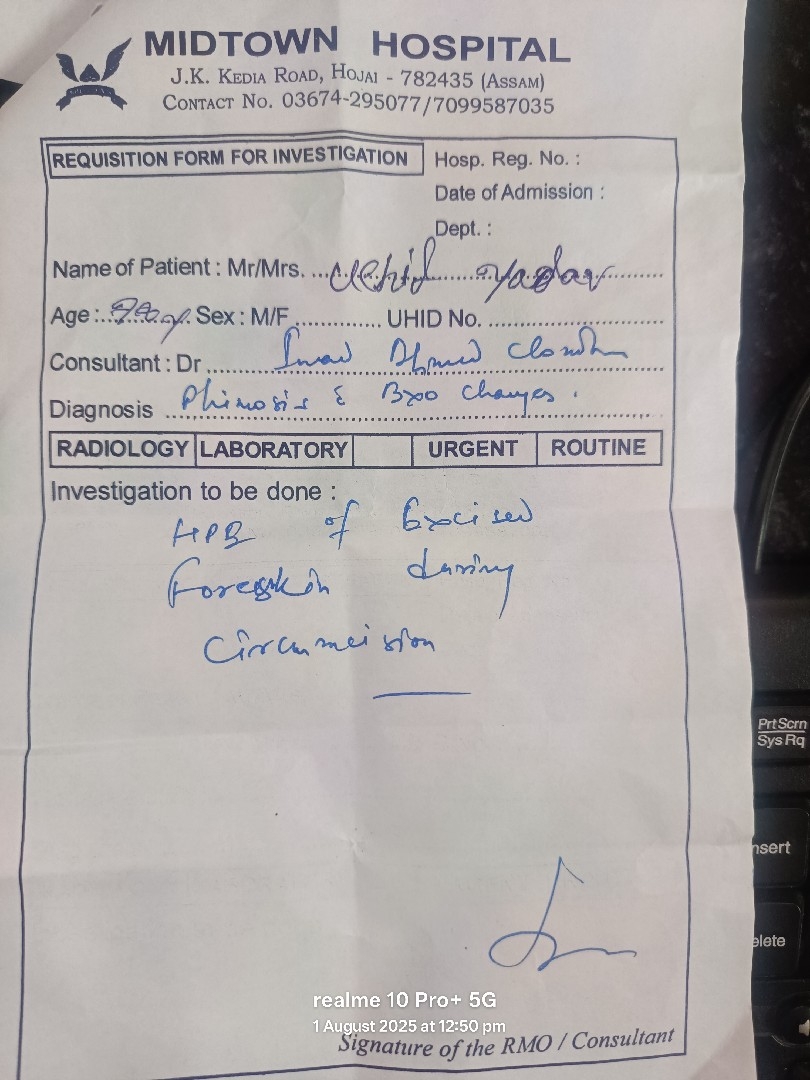 MIDTOWN HOSPITAL
J.K. KEDIA ROAD, HOJAI - 782435 (ASSAM)
CONTACT NO. 03674-295077/7099587035
REQUISITION FORM FOR INVESTIGATION
Hosp. Reg. No. :
Date of Admission :
Dept. :
Name of Patient : Mr/Mrs. Yadav
Age : Sex : M/F UHID No.
Consultant : Dr Ahmed
Diagnosis Phimosis & Bxo Changes.
RADIOLOGY LABORATORY URGENT ROUTINE
Investigation to be done :
HPE of Excised
Foreskin during
Circumcision
realme 10 Pro+ 5G
1 August 2025 at 12:50 pm
Signature of the RMO / Consultant
PrtScrn
Sys Rq
nsert
elete